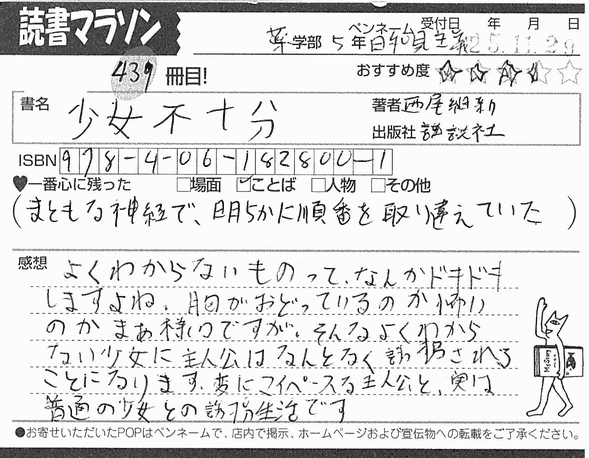 読書マラソン
薬学部 5年 ペンネーム 日和見主義 受付日 年 月 日 25.11.29
439冊目! おすすめ度 ★★★☆☆
書名 少女不十分
著者 西尾維新
出版社 講談社
ISBN 978-4-06-182800-1
♥一番心に残った □場面 ☑ことば □人物 □その他
(まともな神経で、明らかに順番を取り違えていた)
感想 よくわからないものって、なんかドキドキ
しますよね。胸がおどっているのか怖い
のかまぁ様々ですが、そんなよくわから
ない少女に主人公はなんとなく誘拐される
ことになります。変にマイペースな主人公と、実は
普通の少女との誘拐生活です
●お寄せいただいたPOPはペンネームで、店内で掲示、ホームページおよび宣伝物への転載をご了承ください。